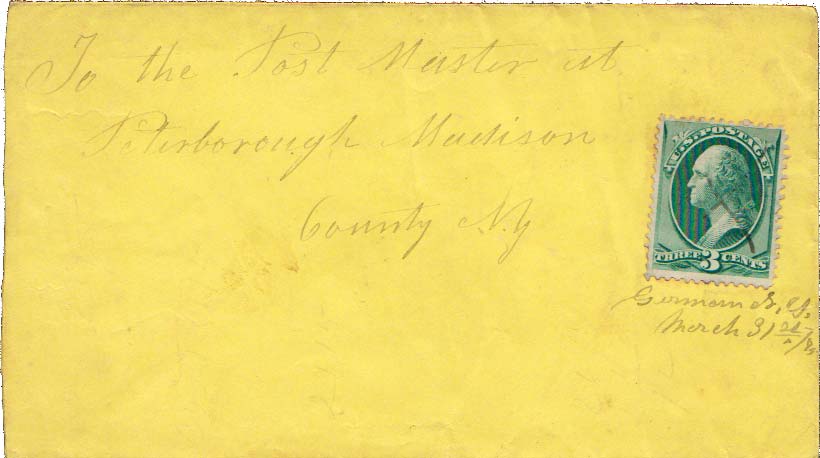 To the Post Master at
Peterborough Madison
County N.Y
U.S. POSTAGE
THREE 3 CENTS
German
March 31 st